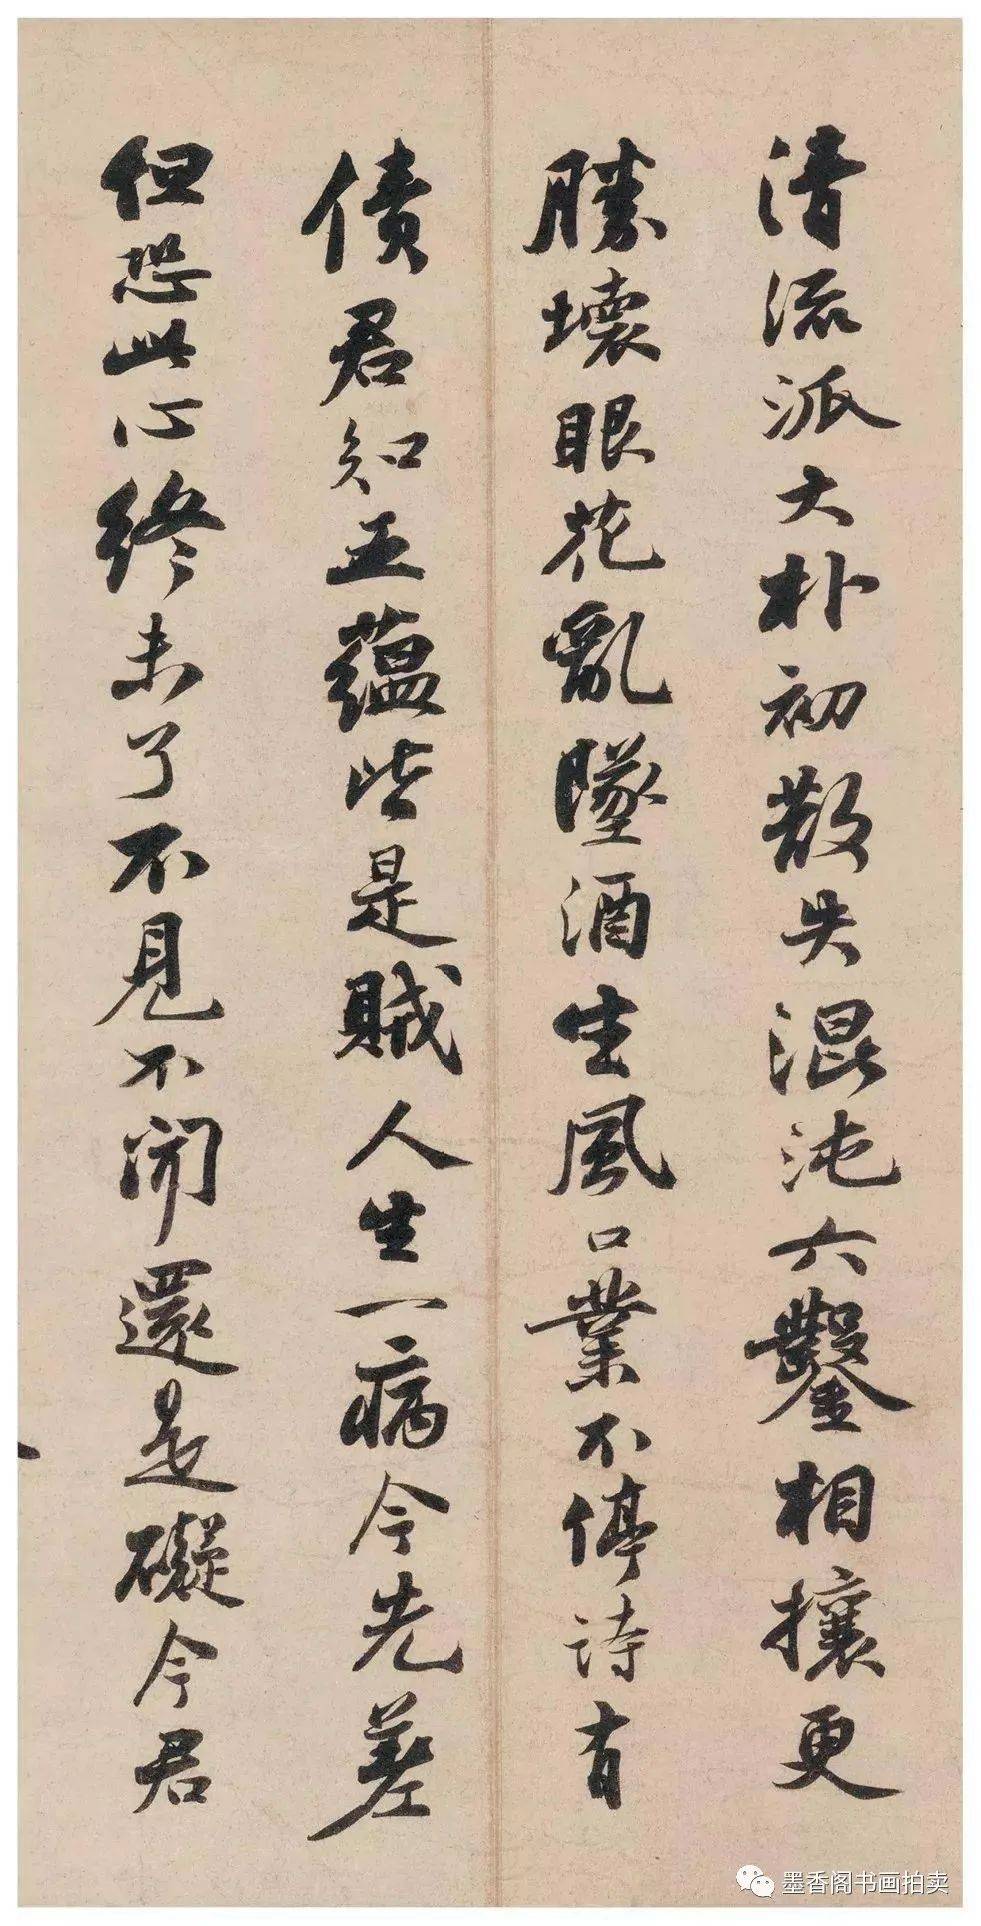 清流派大朴初散失混沌六鑿相攘更
勝壞眼花亂墜酒生風口業不停詩有
債君知五蘊皆是賊人生一病今先差
但恐此心終未了不見不聞還是礙今君
墨香阁书画拍卖